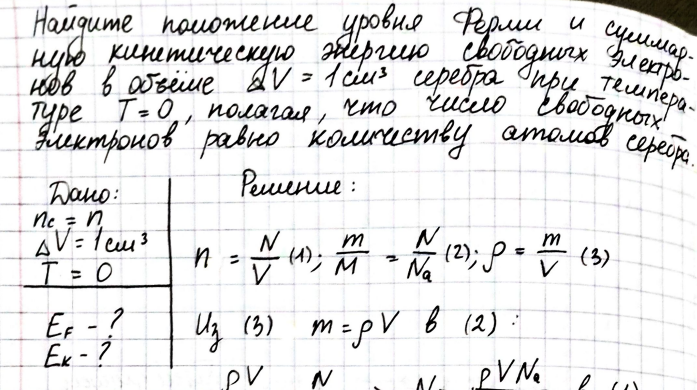 Найдите положение уровня Ферми и суммар-
ную кинетическую энергию свободных электро-
нов в объёме ΔV = 1 см³ серебра при темпера-
туре T = 0, полагая, что число свободных
электронов равно количеству атомов серебра.
Дано:
nc = n
ΔV = 1 см³
T = 0
EF - ?
EK - ?
Решение:
n = N/V (1); m/M = N/Na (2); ρ = m/V (3)
Из (3) m = ρV в (2):
ρV N ρVNa